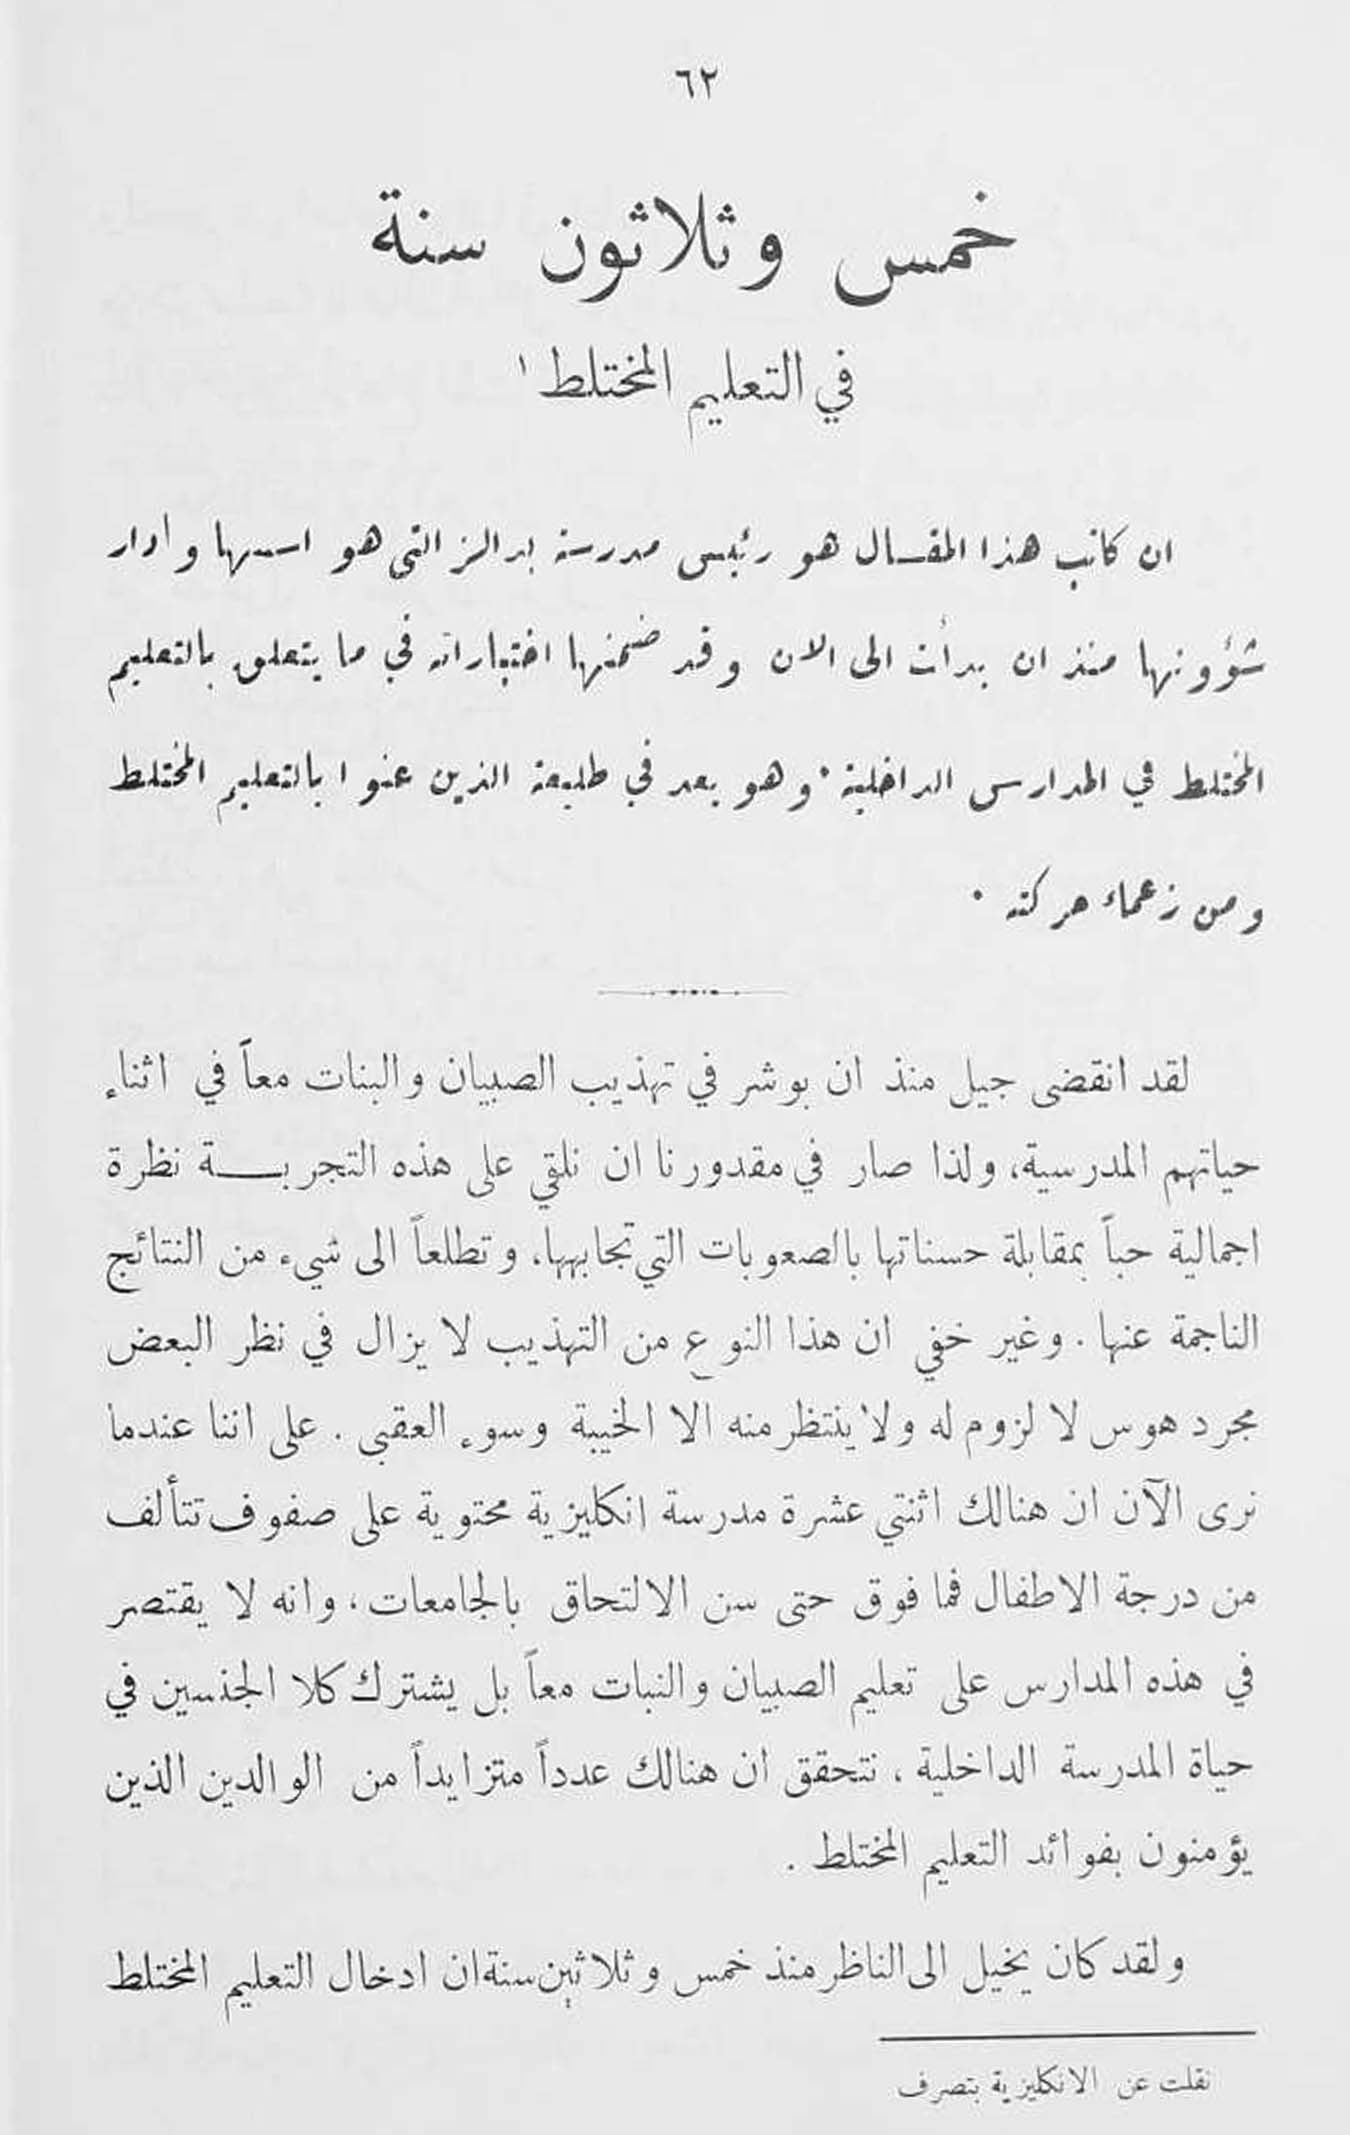 ٦٢
خمس وثلاثون سنة
في التعليم المختلط ١
ان كاتب هذا المقال هو رئيس مدرسة بدالز التي هو اسسها وادار
شؤونها منذ ان بدأت الى الان وقد ضمنها اختباراته في ما يتعلق بالتعليم
المختلط في المدارس الداخلية · وهو يعد في طليعة الذين عنوا بالتعليم المختلط
ومن زعماء حركته ·
لقد انقضى جيل منذ ان بوشر في تهذيب الصبيان والبنات معاً في اثناء
حياتهم المدرسية، ولذا صار في مقدورنا ان نلقي على هذه التجربة نظرة
اجمالية حباً بمقابلة حسناتها بالصعوبات التي تجابهها، وتطلعاً الى شيء من النتائج
الناجمة عنها . وغير خفي ان هذا النوع من التهذيب لا يزال في نظر البعض
مجرد هوس لا لزوم له ولا ينتظر منه الا الخيبة وسوء العقبى . على اننا عندما
نرى الآن ان هنالك اثنتي عشرة مدرسة انكليزية محتوية على صفوف تتألف
من درجة الاطفال فما فوق حتى سن الالتحاق بالجامعات، وانه لا يقتصر
في هذه المدارس على تعليم الصبيان والنبات معاً بل يشترك كلا الجنسين في
حياة المدرسة الداخلية ، نتحقق ان هنالك عدداً متزايداً من الوالدين الذين
يؤمنون بفوائد التعليم المختلط .
ولقد كان يخيل الى الناظر منذ خمس وثلاثين سنة ان ادخال التعليم المختلط
نقلت عن الانكليزية بتصرف